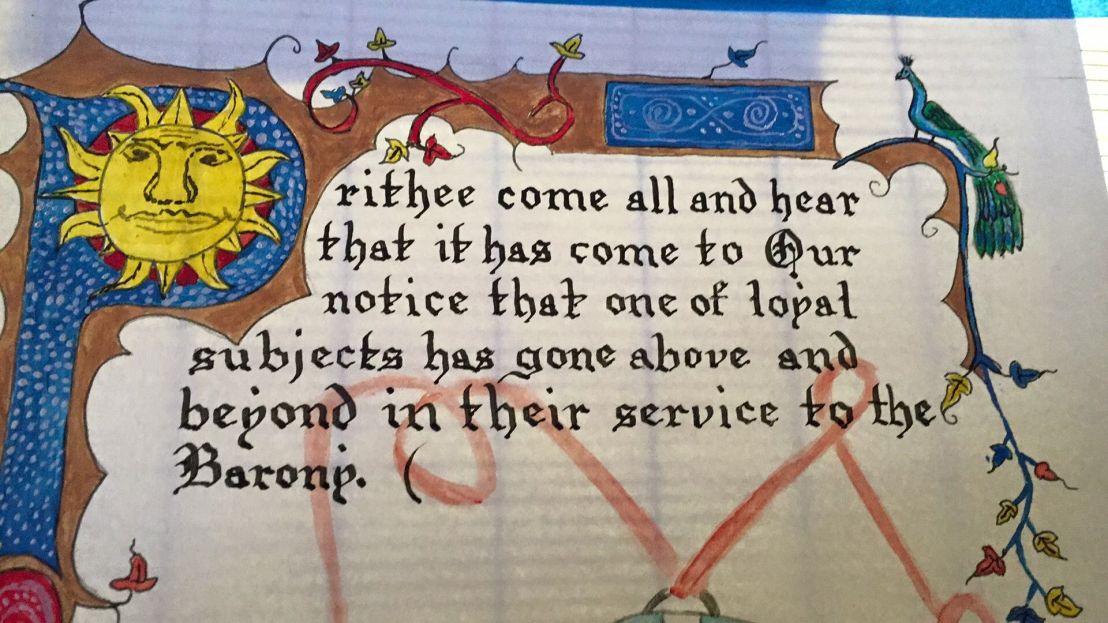 Prithee come all and hear
that it has come to Our
notice that one of loyal
subjects has gone above and
beyond in their service to the
Barony. (